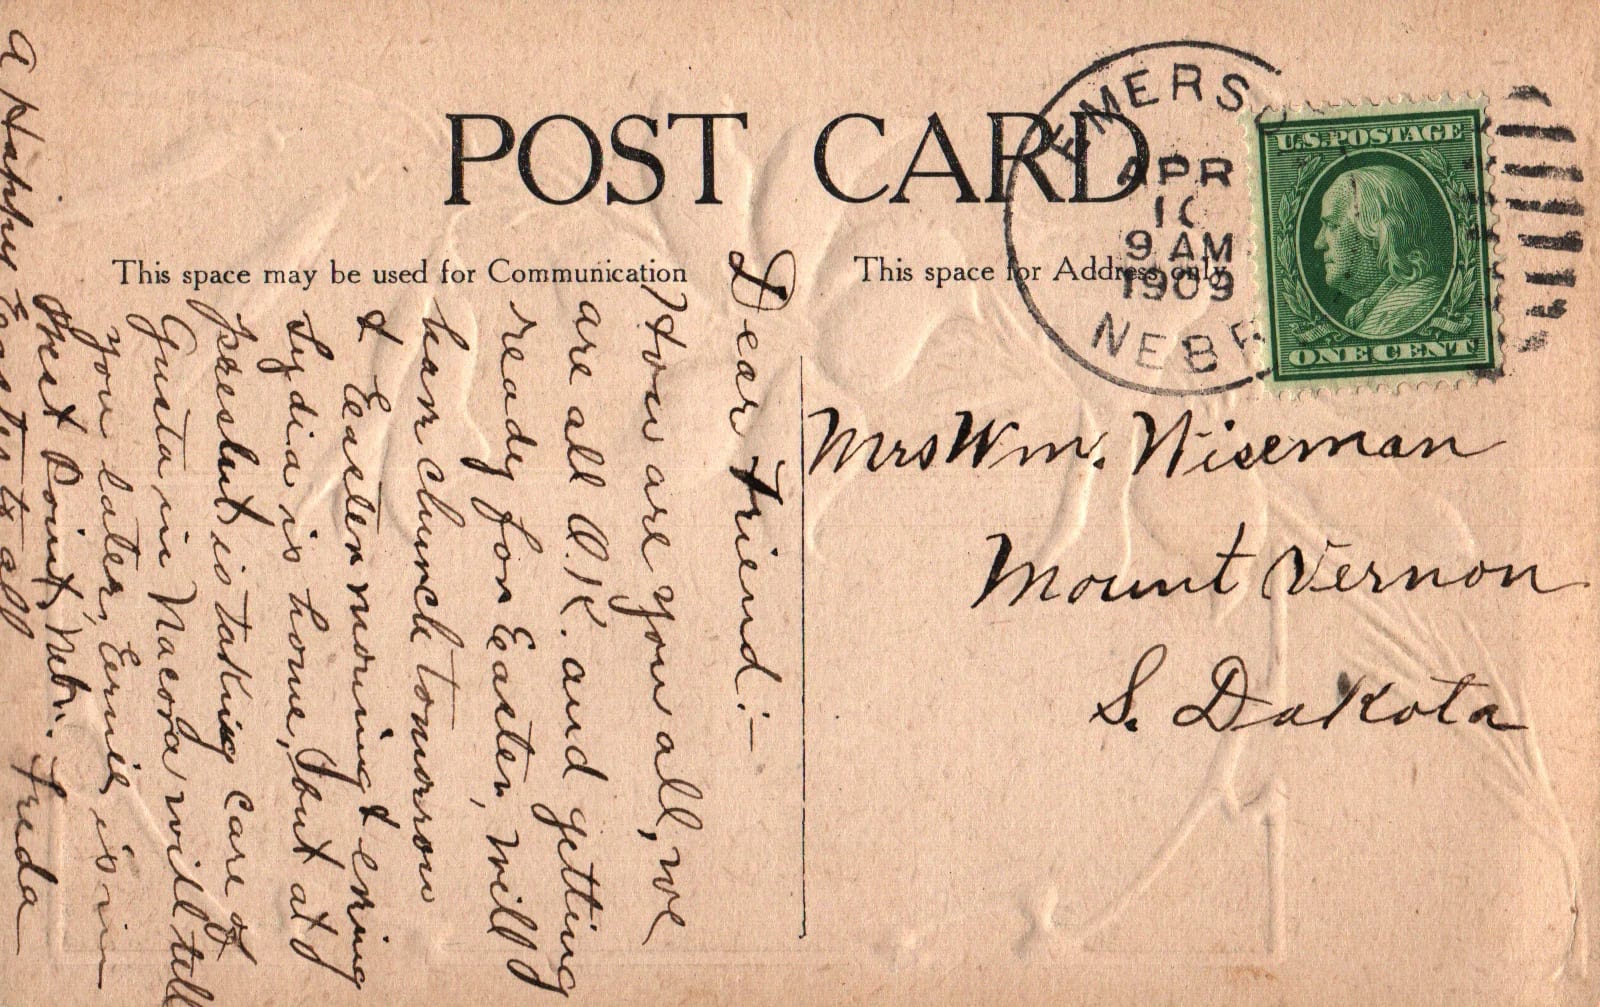 POST CARD
This space may be used for Communication
This space for Address only
EMERSO
APR
10
9 AM
1909
NEBR
U.S. POSTAGE
ONE CENT
Mrs Wm. Wiseman
Mount Vernon
S. Dakota
Dear Friend:-
How are you all, we
are all O.K. and getting
ready for Easter, will
have church tomorrow
& Easter morning & ening
Lydia is home, but at
present is taking care of
Gusta, in Nacora will tell
you later, Ernie is in
West Point, Nebr. Freda
A Happy Easter to all